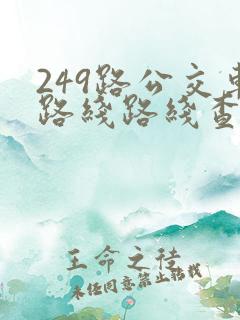 249路公交
路綫路綫查
王命之待
未经同意禁止转载